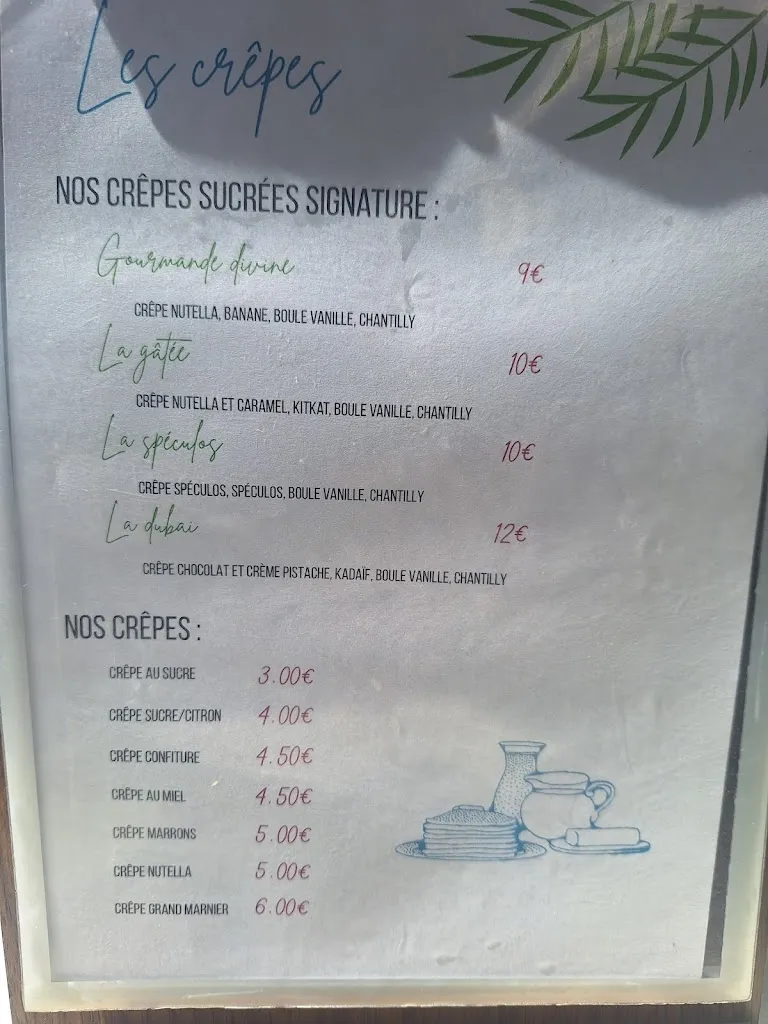 Les crêpes
NOS CRÊPES SUCRÉES SIGNATURE :
Gourmande divine 9€
CRÊPE NUTELLA, BANANE, BOULE VANILLE, CHANTILLY
La gâtée 10€
CRÊPE NUTELLA ET CARAMEL, KITKAT, BOULE VANILLE, CHANTILLY
La spéculos 10€
CRÊPE SPÉCULOS, SPÉCULOS, BOULE VANILLE, CHANTILLY
La dubai 12€
CRÊPE CHOCOLAT ET CRÈME PISTACHE, KADAÏF, BOULE VANILLE, CHANTILLY
NOS CRÊPES :
CRÊPE AU SUCRE 3.00€
CRÊPE SUCRE/CITRON 4.00€
CRÊPE CONFITURE 4.50€
CRÊPE AU MIEL 4.50€
CRÊPE MARRONS 5.00€
CRÊPE NUTELLA 5.00€
CRÊPE GRAND MARNIER 6.00€